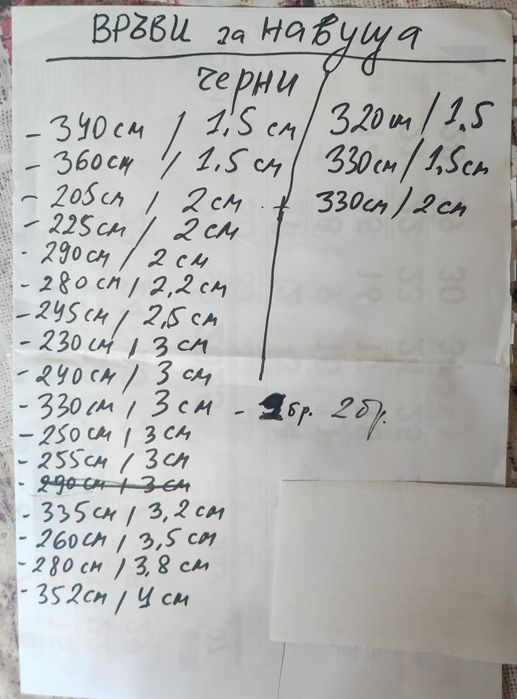 ВРЪВИ за НАВУЩА
ЧЕРНИ
- 340см / 1,5 см
- 360см / 1,5 см
- 205см / 2 см
- 225см / 2 см
- 290см / 2 см
- 280см / 2,2 см
- 245см / 2,5 см
- 230см / 3 см
- 240см / 3 см
- 330см / 3 см - 2бр. 2бр.
- 250см / 3 см
- 255см / 3 см
- 290см / 3 см
- 335см / 3,2 см
- 260см / 3,5 см
- 280см / 3,8 см
- 352см / 4 см
320см / 1,5
330см / 1,5см
+ 330см / 2 см